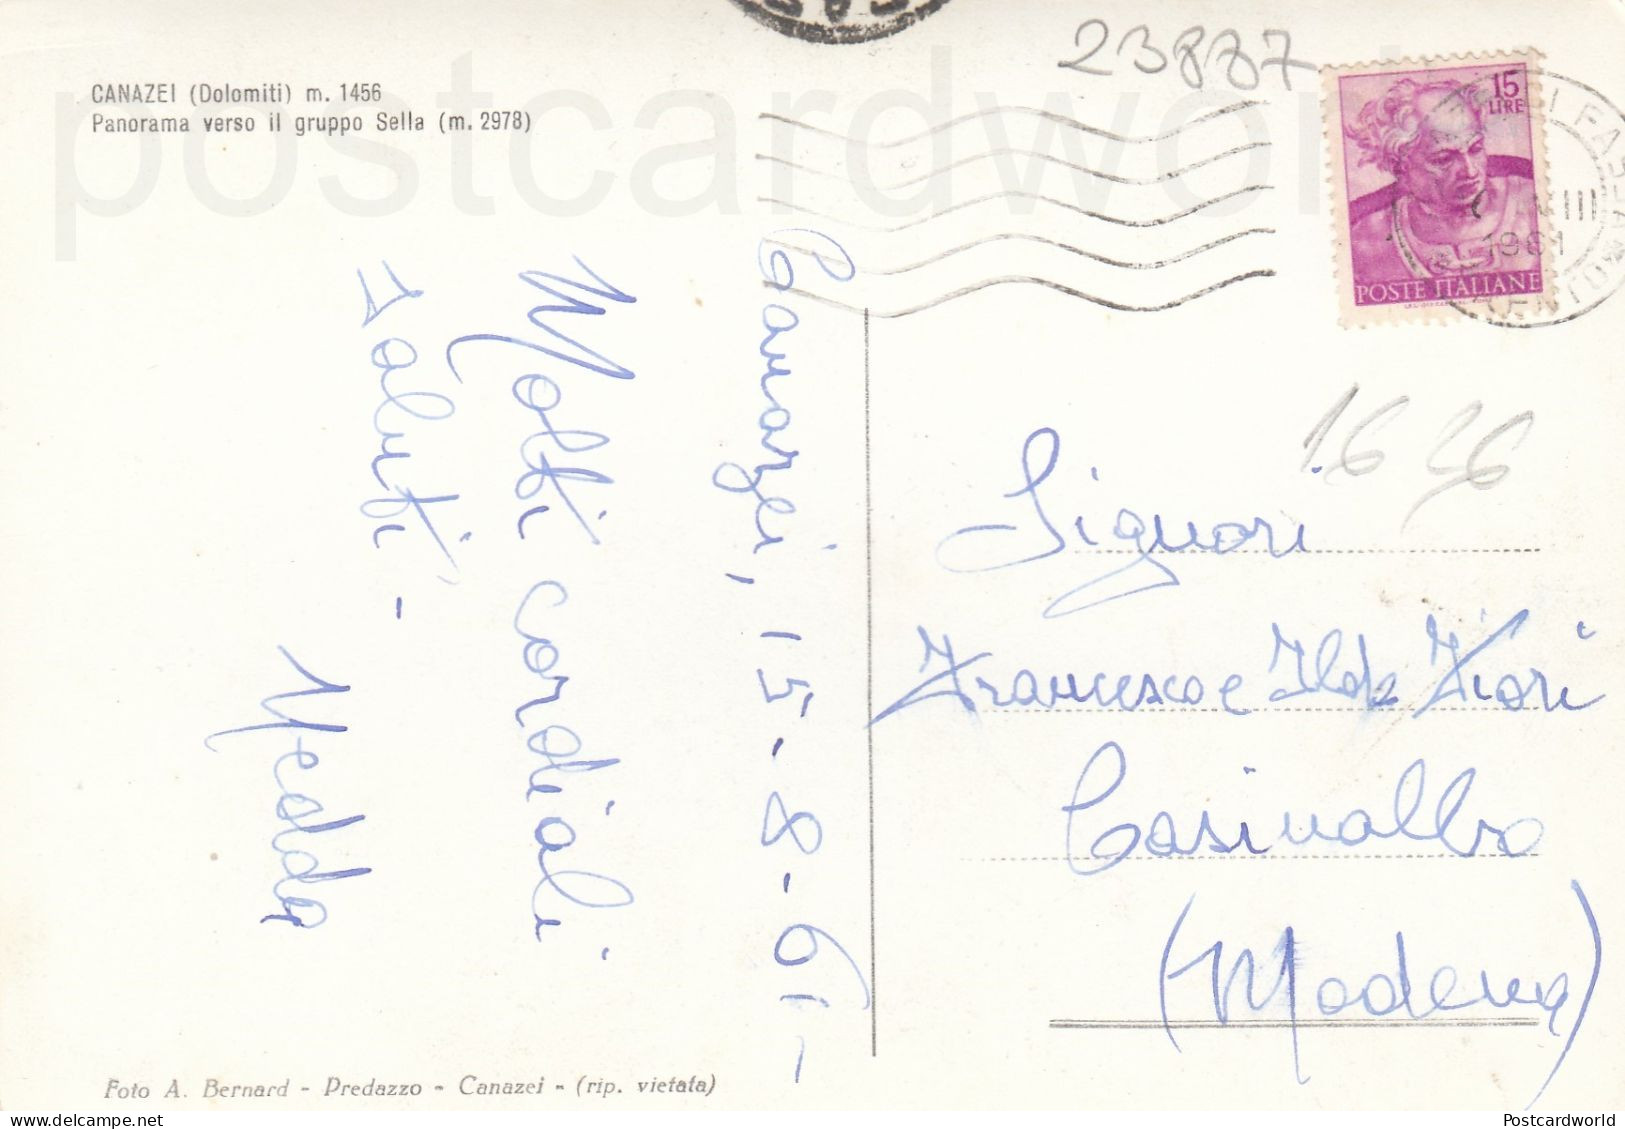 23887
CANAZEI (Dolomiti) m. 1456
Panorama verso il gruppo Sella (m. 2978)
postcardworl
15
LIRE
VIII
1961
POSTE ITALIANE
Canazei, 15-8-61-
Molti cordiali
Saluti -
1626
Signori
Francesco e Ilde Fiori
Casinalbo
(Modena)
Foto A. Bernard - Predazzo - Canazei - (rip. vietata)
Postcardworld